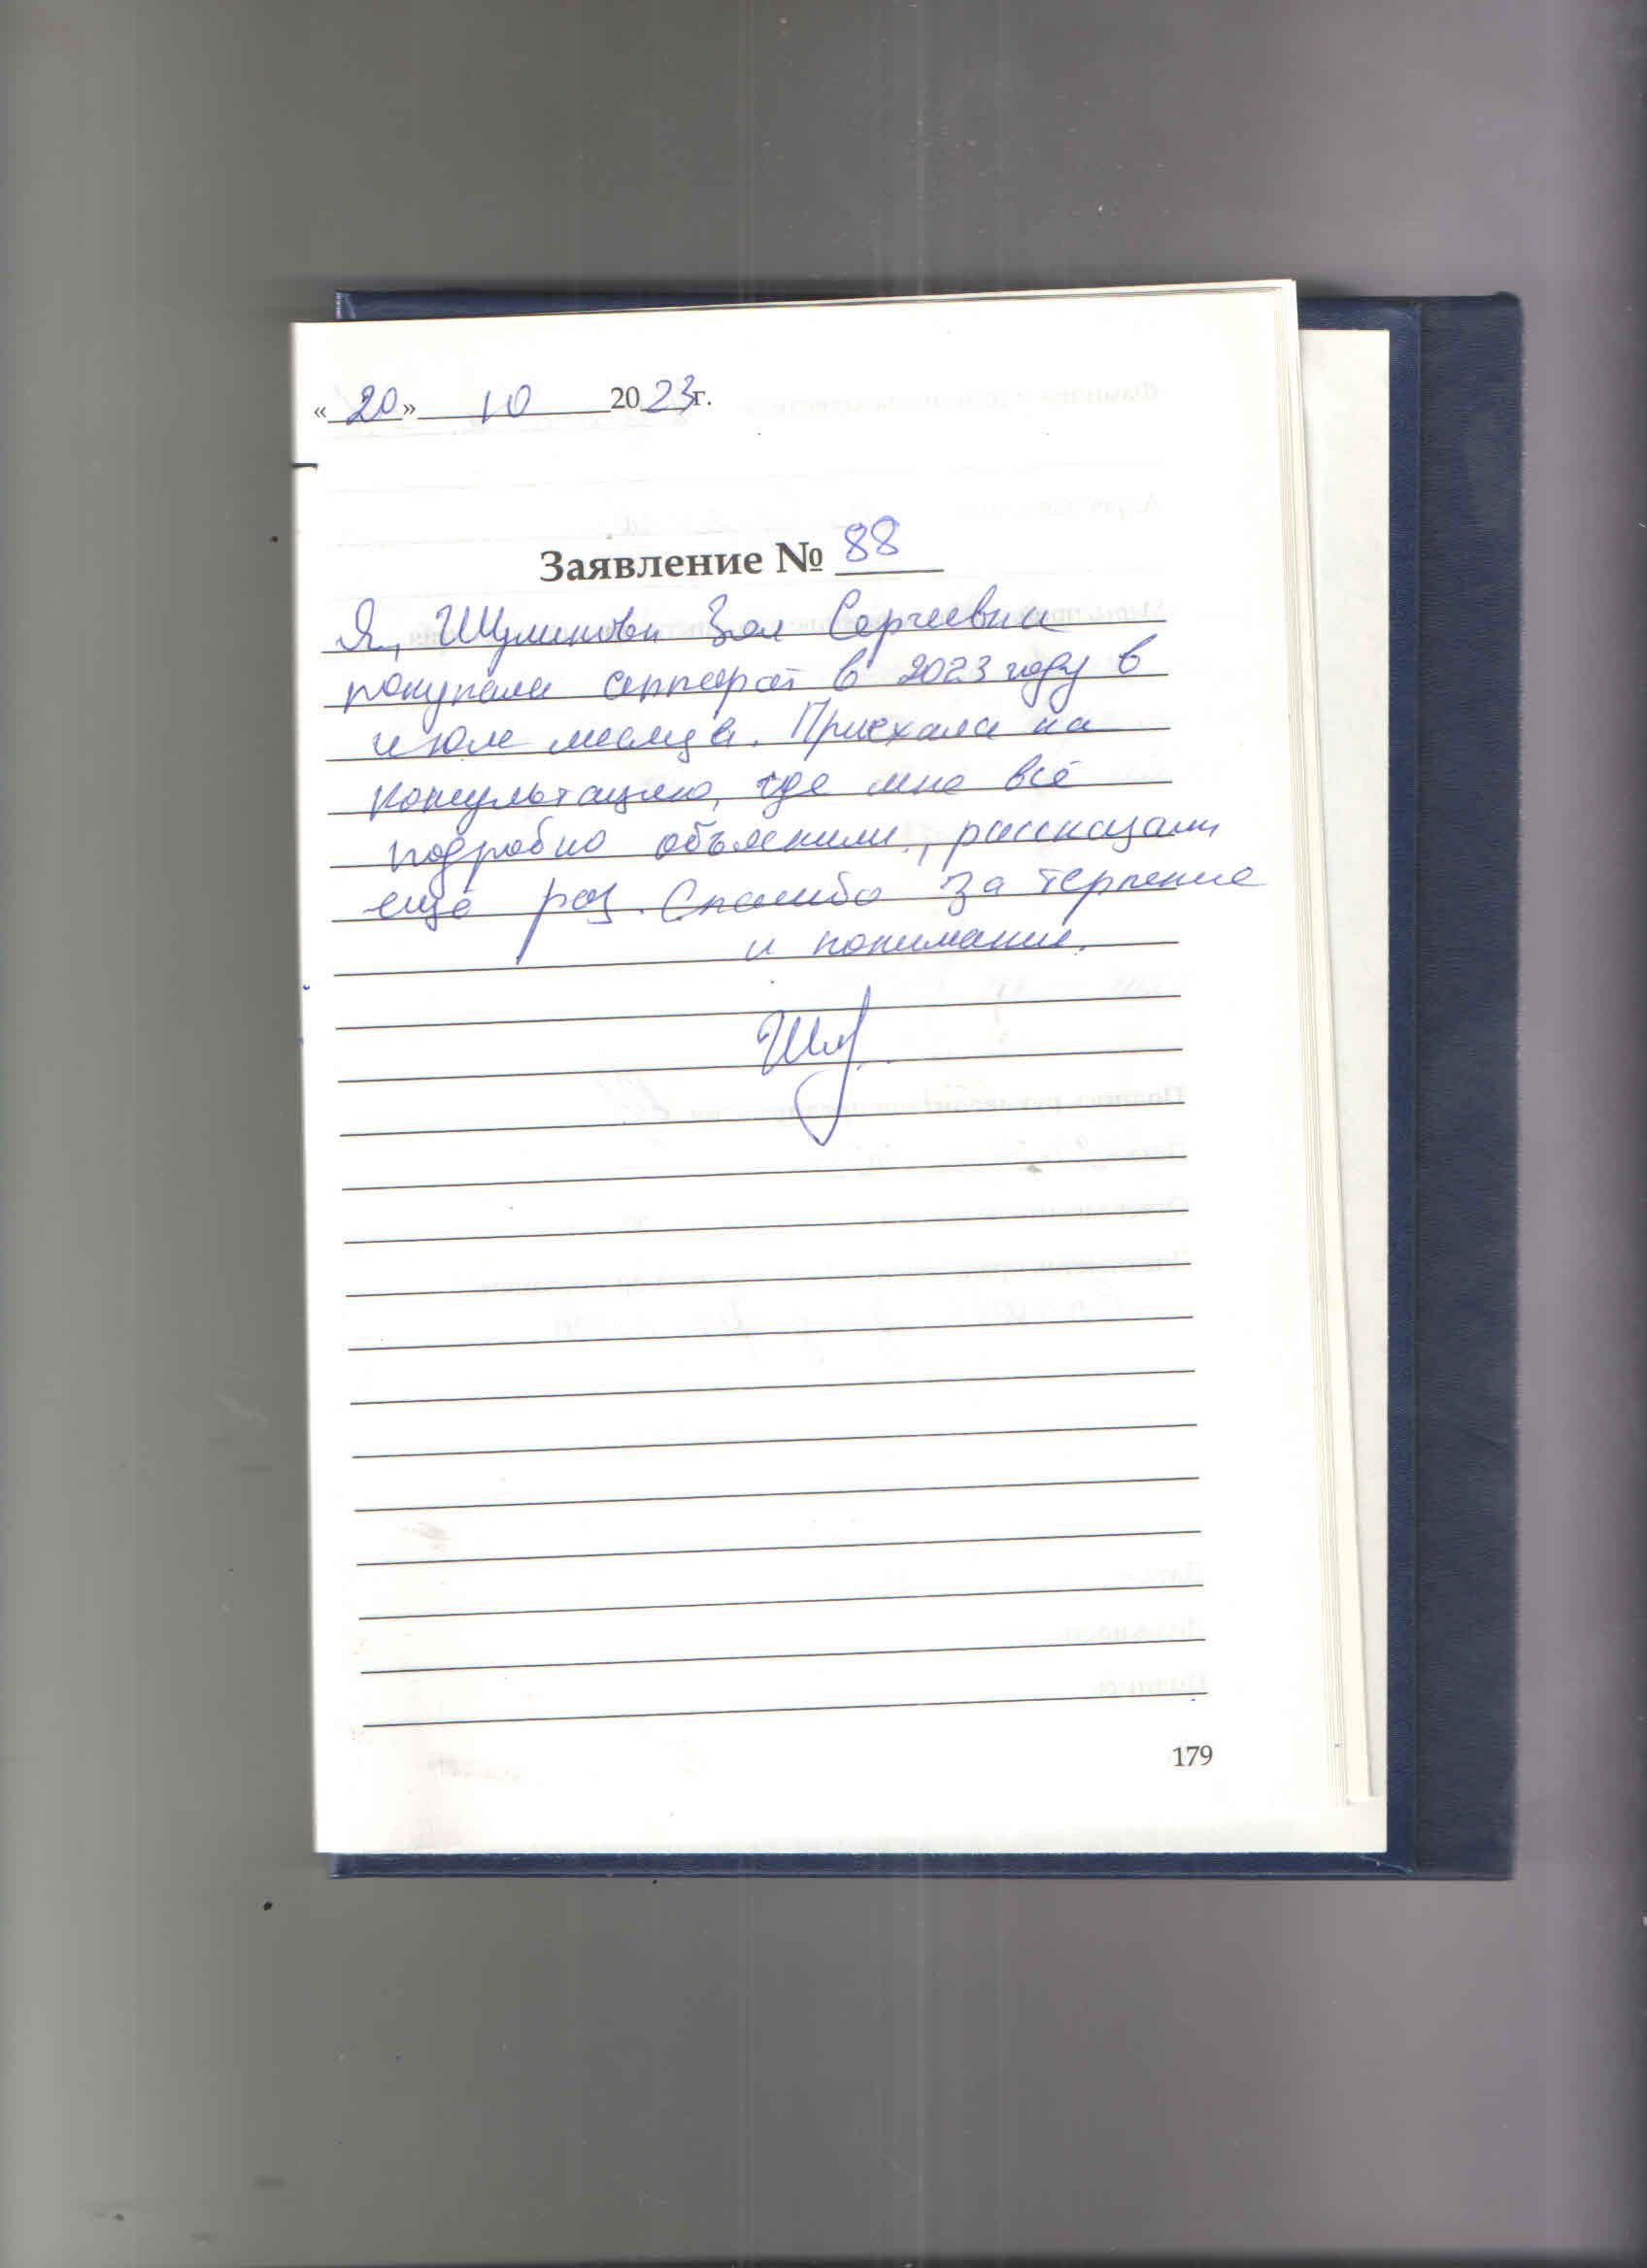 «20» 10 2023г.
Заявление № 88
Я, Зоя Сергеевна
покупала аппарат в 2023 году в
июле месяце. Приехала на
консультацию, где мне всё
подробно объяснили, рассказали
ещё раз. Спасибо за терпение
и понимание.
179